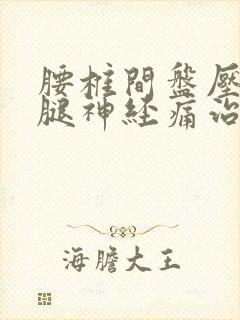 腰柱間盤壓
腿神経痛治
海膽大王